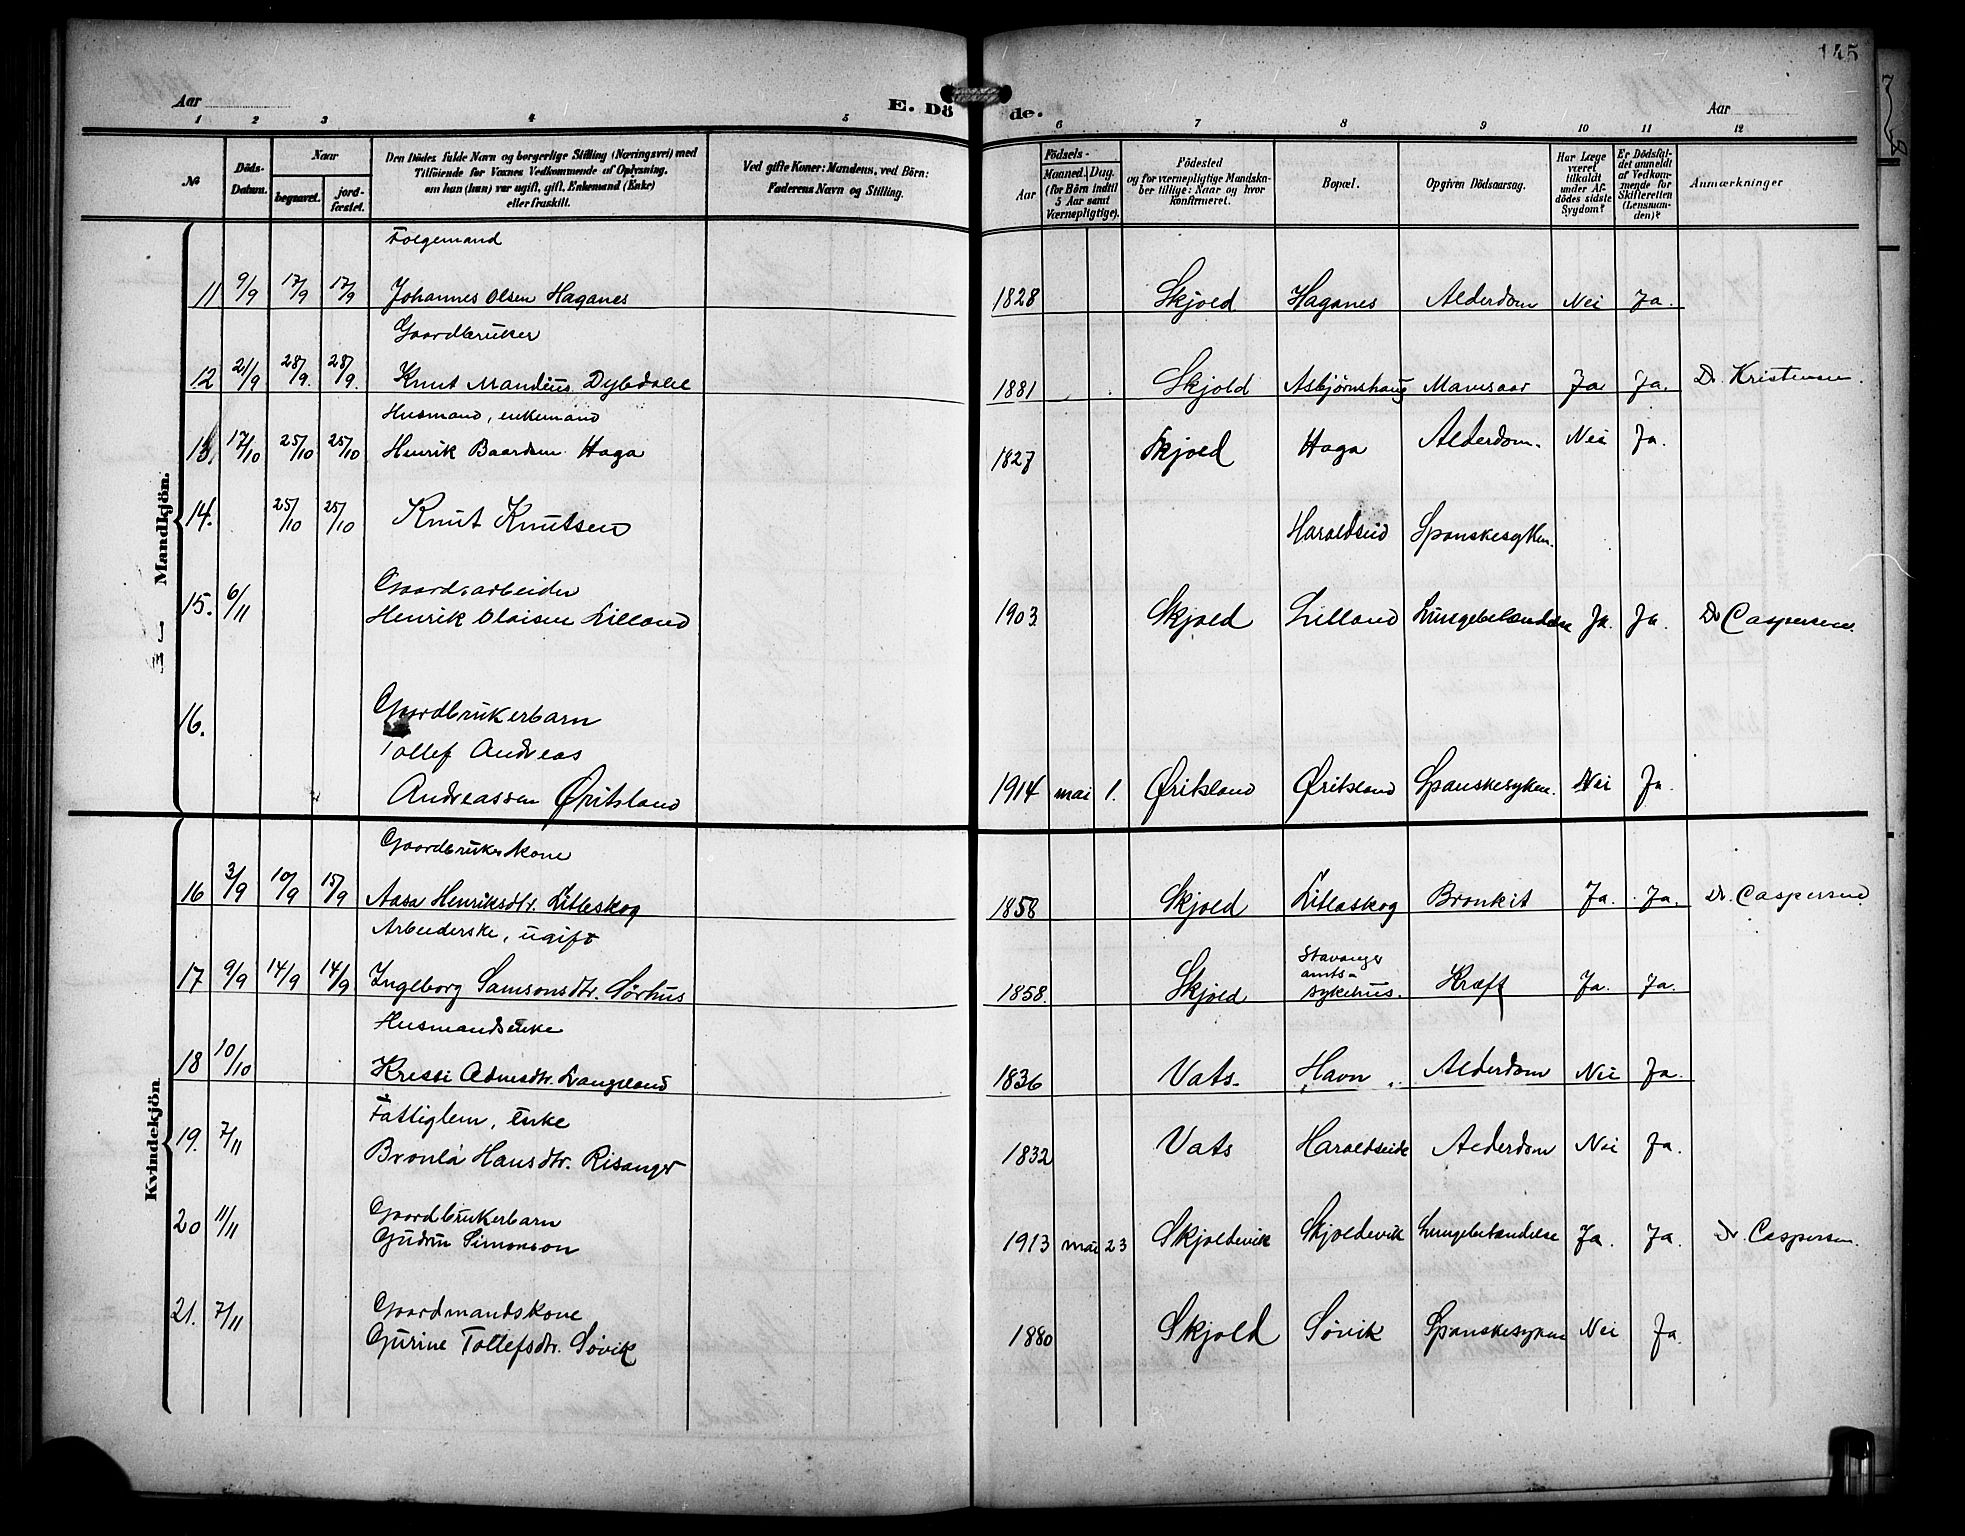 145
Aar
E. Dö
de.
Aar
1 2 3 4 5 6 7 8 9 10 11 12
No
Döds-Datum.
Naar
begravet.
jord-fæstet.
Den Dödes fulde Navn og borgerlige Stilling (Næringsvei) med
Tilföiende for Voxnes Vedkommende af Oplysning,
om han (hun) var ugift, gift, Enkemand (Enke)
eller fraskilt.
Ved gifte Koner: Mandens, ved Börn:
Faderens Navn og Stilling.
Födsels-
Aar
Maaned. Dag.
(for Börn indtil
5 Aar samt
Værnepligtige).
Födested
og for værnepligtige Mandska-
ber tillige: Naar og hvor
konfirmeret.
Bopæl.
Opgiven Dödsaarsag.
Har Læge
været
tilkaldt
under Af-
dödes sidste
Sygdom?
Er Dödsfal-
det anmeldt
af Vedkom-
mende for
Skifteretten
(Lensman-
den)?
Anmærkninger
Mandkjön.
Folgemand
11 9/9 17/9 17/9 Johannes Olsen Haganes 1828 Skjold Haganes Alderdom Nei Ja.
Gaardbruker
12 21/9 28/9. 28/9. Knut Mandius Dybdahl 1881 Skjold Asbjørnshaug Ja Ja. Dr. Kristensen.
Husmand, enkemand
13 17/10 25/10 25/10 Henrik Baardsen Haga 1827 Skjold Haga Alderdom. Nei Ja.
14. 25/10 25/10 Knut Knutsen Haraldseid Spanskesyken.
Gaardsarbeider
15. 6/11 Henrik Olaisen Lilland 1903 Skjold Lilland Lungebetændelse Ja. Ja. Dr Caspersen.
16. Gaardbrukerbarn
Tollef Andreas
Andreassen Øritsland 1914 mai 1. Øritsland Øritsland Spanskesyken. Nei Ja.
Kvindekjön
Gaardbrukerkone
16 3/9 10/9 15/9 Aasa Henriksdtr. Litleskog 1858 Skjold Litlaskog Bronkit Ja. Ja. Dr. Caspersen
Arbeiderske, ugift
17 9/9 14/9 14/9 Ingeborg Samsonsdtr. Sørhus 1858. Skjold Stavanger
amts-
sykehus. Kræft Ja. Ja.
Husmandsenke
18 10/10 Kresti Langeland 1836 Vats. Havn Alderdom Nei Ja.
Fattiglem, Enke
19. 7/11 Hansdtr. Risanger 1832 Vats Haraldseide Alderdom Nei Ja.
Gaardbrukerbarn
20 11/11 Gudrun Simonson 1913 mai 23 Skjoldevik Skjoldevik Lungebetændelse Ja. Ja. Dr. Caspersen.
Gaardmandskone
21. 7/11 Gurine Tollefsdtr. Søvik 1880 Skjold Søvik Spanskesyken Nei Ja.